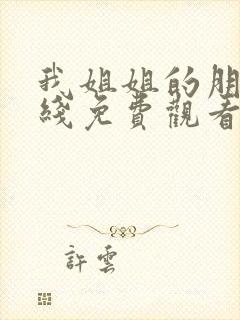 我姐姐的朋
綫免費觀看
許雲